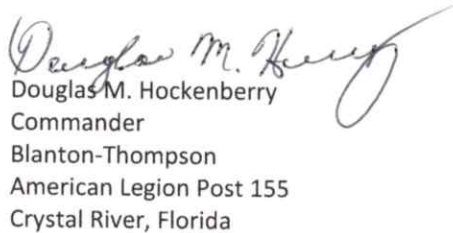 Douglas M. Hockenberry
Douglas M. Hockenberry
Commander
Blanton-Thompson
American Legion Post 155
Crystal River, Florida